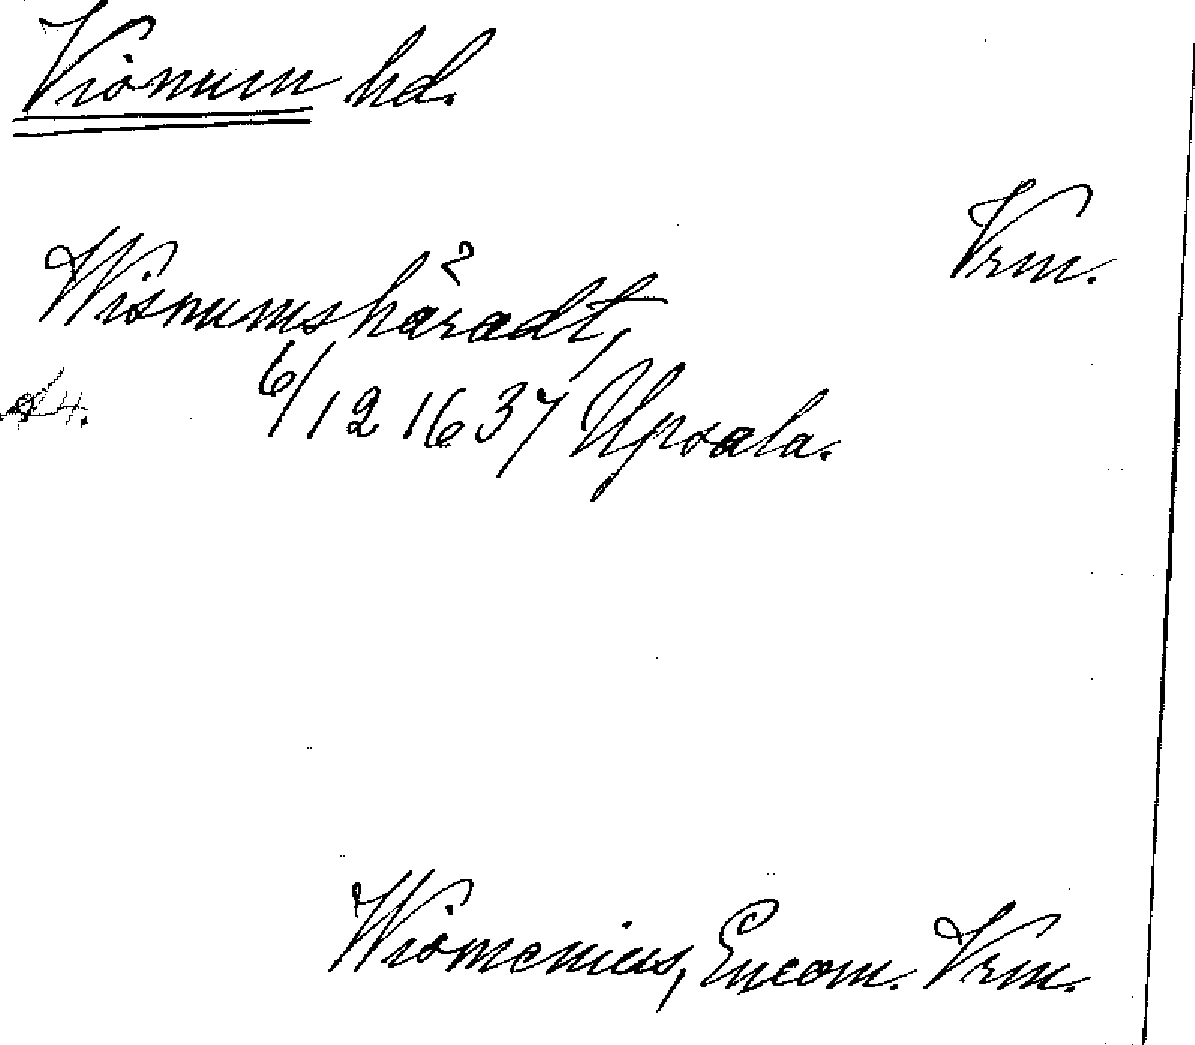 Visnum hd.
Vrm.
Wisnumshäradt,
6/12 1637 Upsala.
Wismenius, Encom. Vrm.